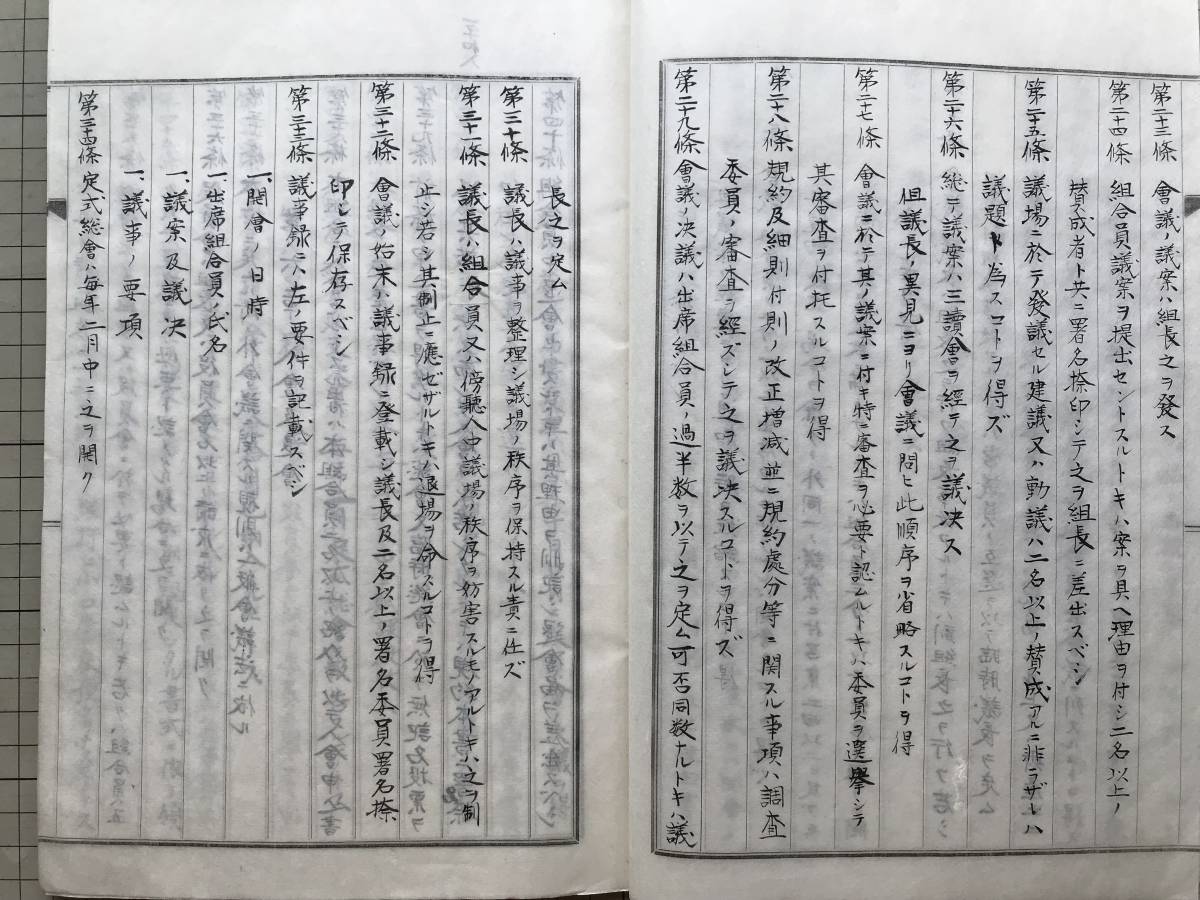 第二十三條 會議ノ議案ハ組長之ヲ發ス
第二十四條 組合員議案ヲ提出セントスルトキハ案ヲ具ヘ理由ヲ付シ二名以上ノ
賛成者ト共ニ署名捺印シテ之ヲ組長ニ差出スベシ
第二十五條 議場ニ於テ發議セル建議又ハ動議ハ二名以上ノ賛成アルニ非ラザレハ
議題ト為スコトヲ得ズ
第二十六條 総テ議案ハ三讀會ヲ經テ之ヲ議决ス
但議長ノ異見ニヨリ會議ニ問ヒ此順序ヲ省略スルコトヲ得
第二十七條 會議ニ於テ其ノ議案ニ付キ特ニ審査ヲ必要ト認ムルトキハ委員ヲ選擧シテ
其審査ヲ付托スルコトヲ得
第二十八條 規約及細則付則ノ改正増減並ニ規約處分等ニ関スル事項ハ調査
委員ノ審査ヲ經ズシテ之ヲ議决スルコトヲ得ズ
第二十九條 會議ノ决議ハ出席組合員ノ過半数ヲ以テ之ヲ定ム可否同数ナルトキハ議
長之ヲ定ム
第三十條 議長ハ議事ヲ整理シ議場ノ秩序ヲ保持スル責ニ任ズ
第三十一條 議長ハ組合員又ハ傍聽人中議場ノ秩序ヲ妨害スルモノアルトキハ之ヲ制
止シ若シ其制止ニ應ゼザルトキハ退場ヲ命スルコトヲ得
第三十二條 會議ノ始末ハ議事録ニ登載シ議長及二名以上ノ署名委員署名捺
印シテ保存スベシ
第三十三條 議事録ニハ左ノ要件ヲ記載スベシ
一、開會ノ日時
一、出席組合員ノ氏名
一、議案及議决
一、議事ノ要項
第三十四條 定式総會ハ毎年二月中ニ之ヲ開ク